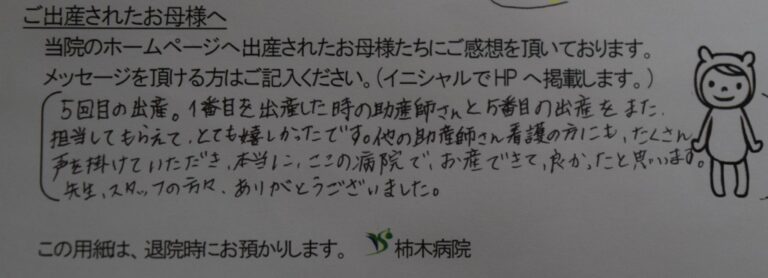 ご出産されたお母様へ
当院のホームページへ出産されたお母様たちにご感想を頂いております。
メッセージを頂ける方はご記入ください。(イニシャルでHPへ掲載します。)
5回目の出産。1番目を出産した時の助産師さんと5番目の出産をまた、
担当してもらえて、とても嬉しかったです。他の助産師さん看護の方にも、たくさん
声を掛けていただき、本当に、ここの病院で、お産できて、良かったと思います。
先生、スタッフの方々、ありがとうございました。
この用紙は、退院時にお預かりします。 柿木病院